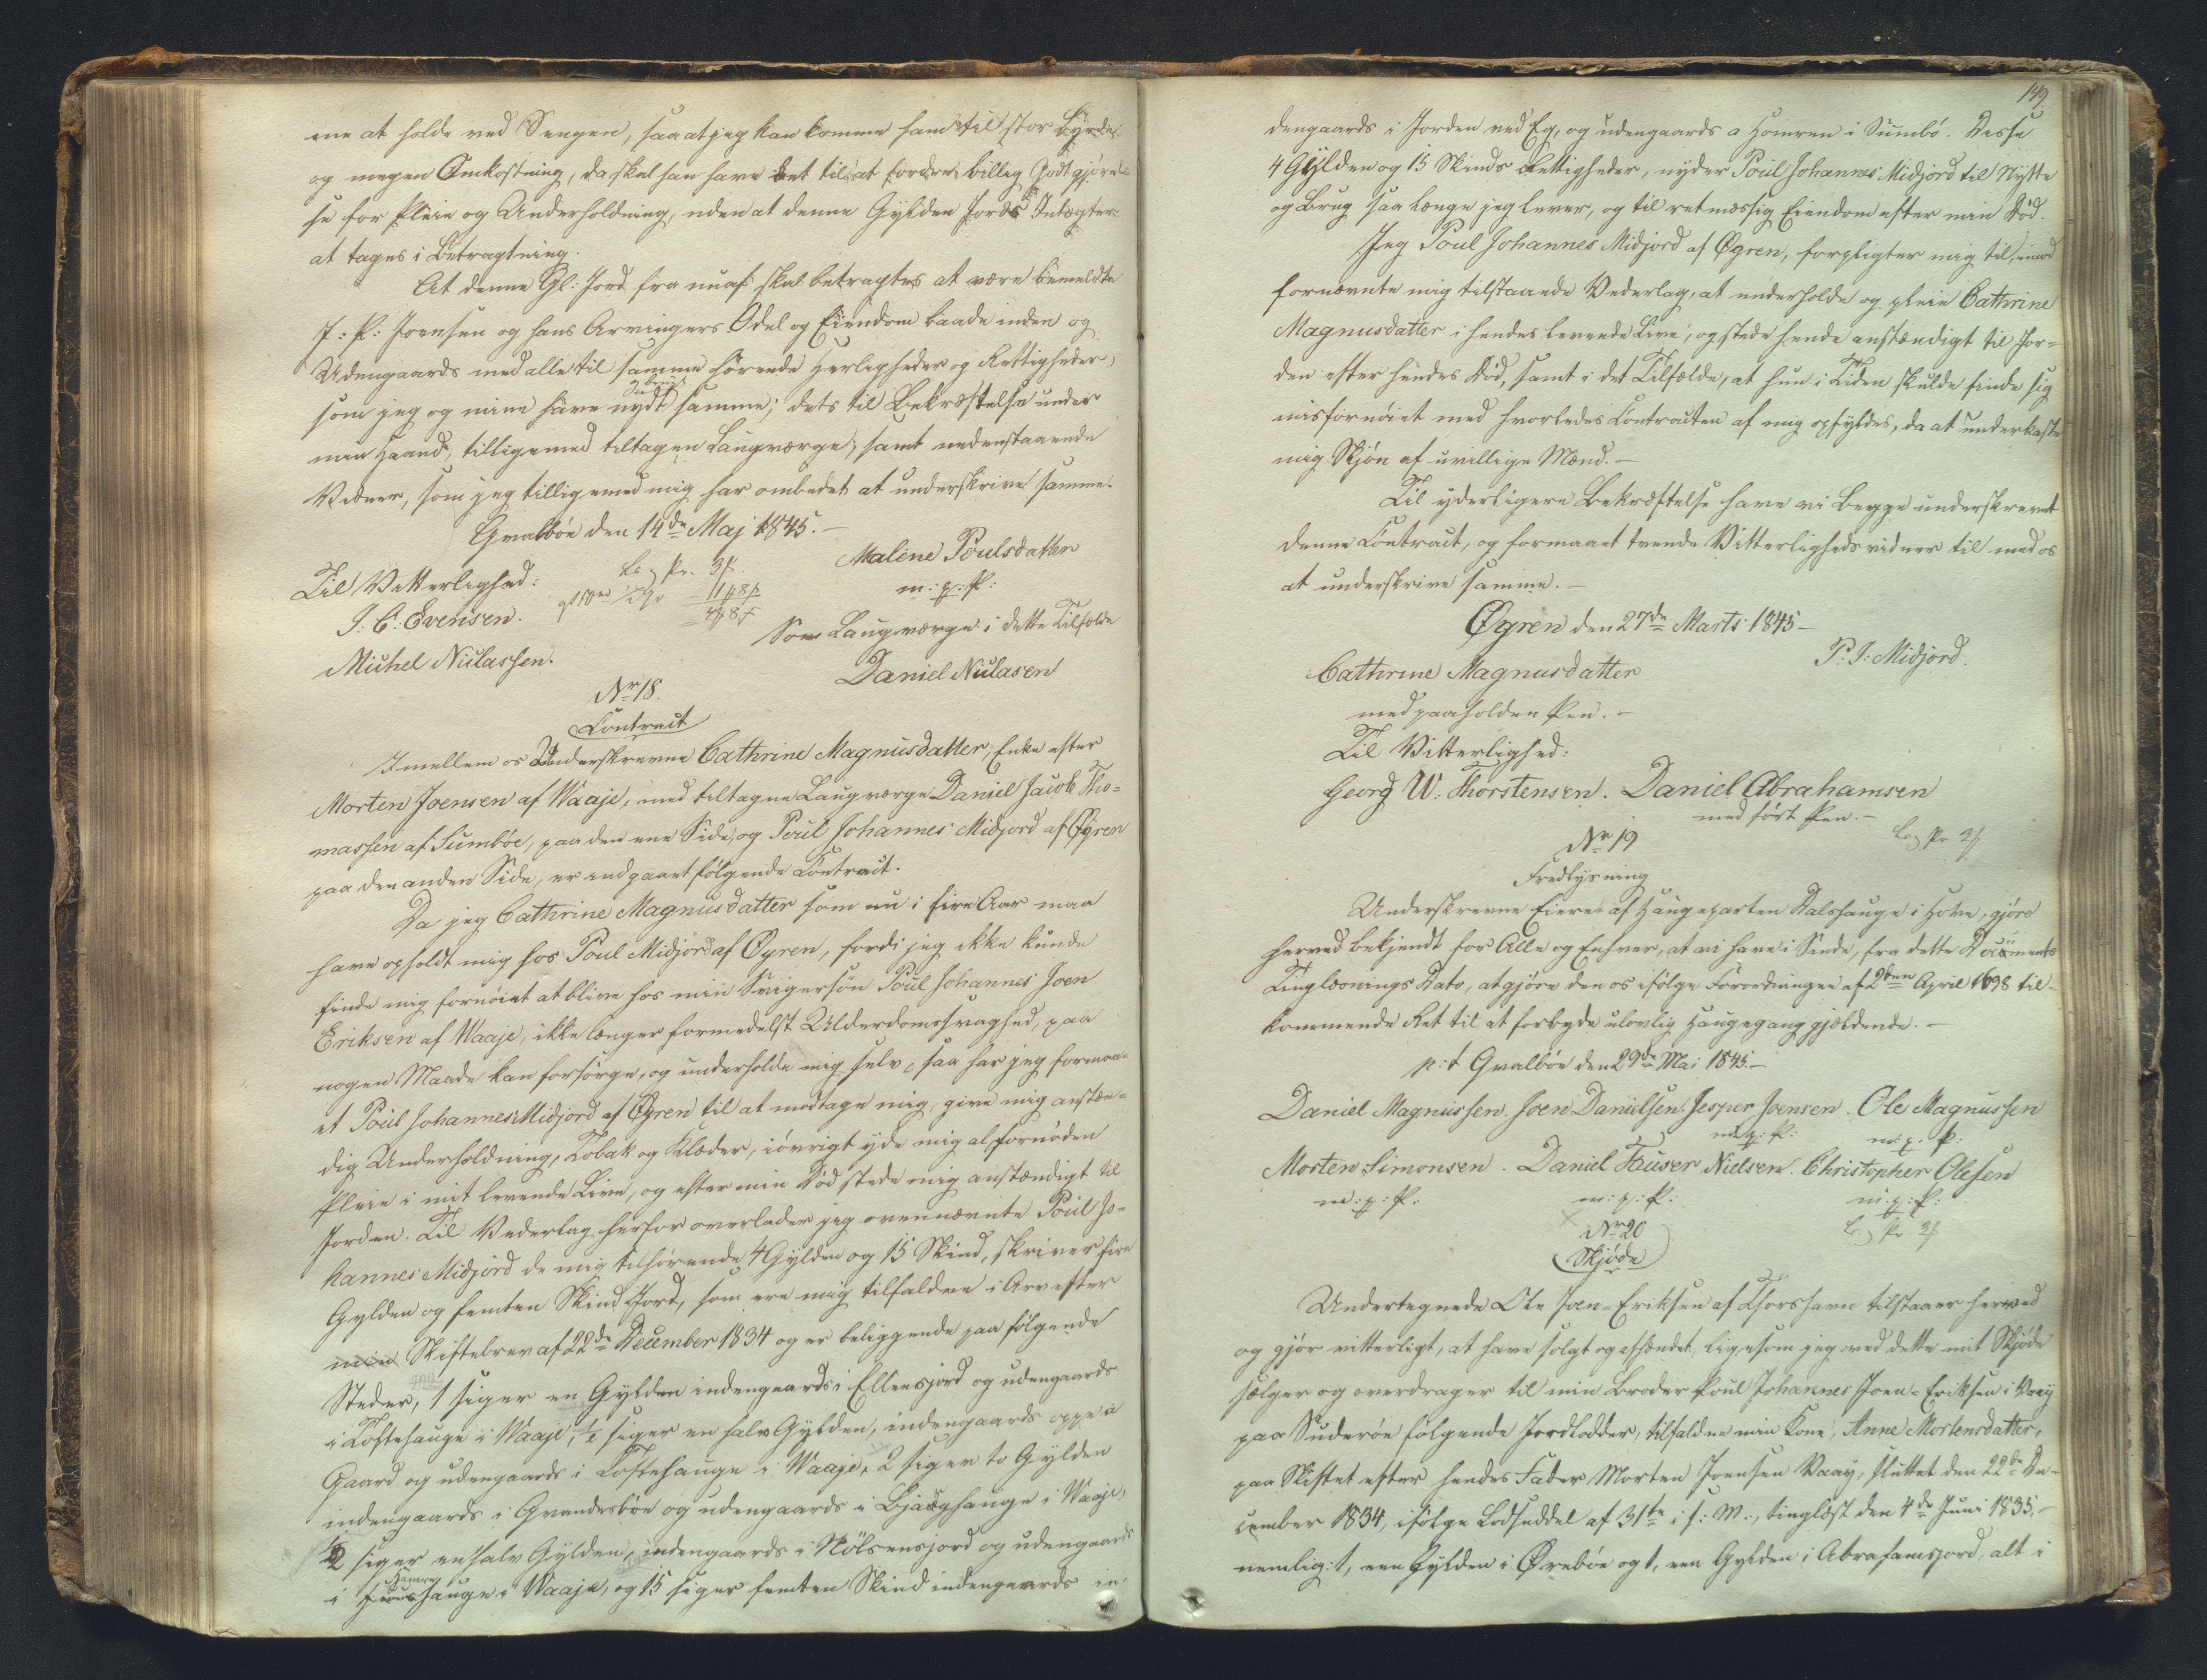 me at holde ved Sengen, saa at jeg kan komme ham til stor Byrde
og megen Omkostning, da skal han have Ret til at fordre billig Godtgjørel-
se for Pleie og Underholdning, uden at denne Gylden Jords Indtægter
at tages i Betragtning.
At denne Gl: Jord fra nu af skal betragtes at være bemeldte
J: P: Joensen og hans Arvingers Odel og Eiendom baade inden og
Udengaards med alle til samme hörende Herligheder og Rettigheder,
som jeg og mine have nydt og brugt samme; dets til Bekræftelse under
min Haand, tilligemed tiltagen Laugværge, samt nedenstaaende
Vidner, som jeg tilligemed mig har ombedet at underskrive samme.
Qvalböe den 14de Maj 1845.-
Til Vitterlighed:
J: C: Evensen.
Michel Niclassen.
Malene Poulsdatter
m: p: P:
Som Laugværge i dette Tilfælde
Daniel Niclasen
Nr 18.
Contract
Imellem os Underskrevne Cathrine Magnusdatter, Enke efter
Morten Joensen af Waaje, med tiltagne Laugværge Daniel Jacob Tho-
massen af Sumböe, paa den ene Side, og Poul Johannes Midjord af Øyren
paa den anden Side, er indgaaet fölgende Contract.
Da jeg Cathrine Magnusdatter som nu i fire Aar maa
have opholdt mig hos Poul Midjord af Øyren, fordi jeg ikke kunde
finde mig fornöiet at blive hos min Svigersön Poul Johannes Joen
Eriksen af Waaje, ikke længer formedelst Alderdomssvaghed, paa
nogen Maade kan forsörge, og underholde mig selv, saa har jeg formaa-
et Poul Johannes Midjord af Øyren til at modtage mig, give mig anstæn-
dig Underholdning, Tobak og Klæder, iövrigt yde mig al fornöden
Pleie i mit levende Live, og efter min Död stede mig anstændigt til
Jorden. Til Vederlag herfor overlader jeg ovennævnte Poul Jo-
hannes Midjord de mig tilhörende 4 Gylden og 15 Skind, skriver fire
Gylden og femten Skind Jord, som ere mig tilfaldne i Arv efter
min Skiftebrev af 22de December 1834 og er beliggende paa fölgende
Steder, 1 siger en Gylden indengaards i Ellensjord og udengaards
i Toftehauge i Waaje, ½ siger en halv Gylden, indengaards oppe a
Gaard og udengaards i Toftehauge i Waaje, 2 siger to Gylden
indengaards i Grandesböe og udengaards i Bjærghauge i Waaje,
½ siger en halv Gylden, indengaards i Nölsensjord og udengaards
i Hamrehauge i Waaje, og 15 siger femten Skind indengaards in-
149
dengaards i Jorden ved Eg, og udengaards a Homren i Sumbö. Disse
4 Gylden og 15 Skinds Rettigheder, nyder Poul Johannes Midjord til Nytte
og Brug saa længe jeg lever, og til retmæssig Eiendom efter min Död.
Jeg Poul Johannes Midjord af Øyren, forpligter mig til, imod
fornævnte mig tilstaaede Vederlag, at underholde og pleie Cathrine
Magnusdatter i hendes levende Live, og stede hende anstændigt til Jor-
den efter hendes Död, samt i det Tilfælde, at hun i Tiden skulde finde sig
misfornöiet med hvorledes Contracten af mig opfyldes, da at underkaste
mig Skjön af uvillige Mænd.-
Til yderligere Bekræftelse have vi Begge underskrevet
denne Contract, og formaaet tvende Vitterlighedsvidner til med os
at underskrive samme.-
Øyren den 27de Marts 1845-
Cathrine Magnusdatter
med paaholden Pen.-
P: J: Midjord.
Til Vitterlighed:
Georg W. Thorstensen. Daniel Abrahamsen
med fört Pen.-
Nr 19
Fredlysning
Underskrevne Eiere af Haugeparten Dalshauge i Hove, gjöre
herved bekjendt for Alle og Enhver, at vi have i Sinde, fra dette Documents
Tinglæsnings Dato, at gjöre den os ifölge Forordningen af 2den April 1698 til-
kommende Ret til at forbyde ulovlig Haugegang gjældende.-
p: t Qvalböe den 29de Mai 1845.-
Daniel Magnussen. Joen Danielsen. Jesper Joensen. Ole Magnussen
m: p: P: m: p: P:
Morten Simonsen. Daniel Fauser Nielsen. Christopher Olesen
m: p: P: m: p: P: m: p: P:
Nr 20
Skjöde
Undertegnede Ole Joen-Eriksen af Thorshavn tilstaaer herved
og gjör vitterligt, at have solgt og afhændet, ligesom jeg ved dette mit Skjöde
sælger og overdrager til min Broder Poul Johannes Joen-Eriksen i Vaaj
paa Suderöe fölgende Jordlodder, tilfaldne min Kone, Anne Mortensdatter,
paa Skiftet efter hendes Fader Morten Joensen Vaaj, sluttet den 22de De-
cember 1834, ifölge Lodseddel af 31te i s: M., tinglæst den 4de Juni 1835,-
nemlig: 1, een Gylden i Ørebö og 1, een Gylden i Abrahamsjord, alt i